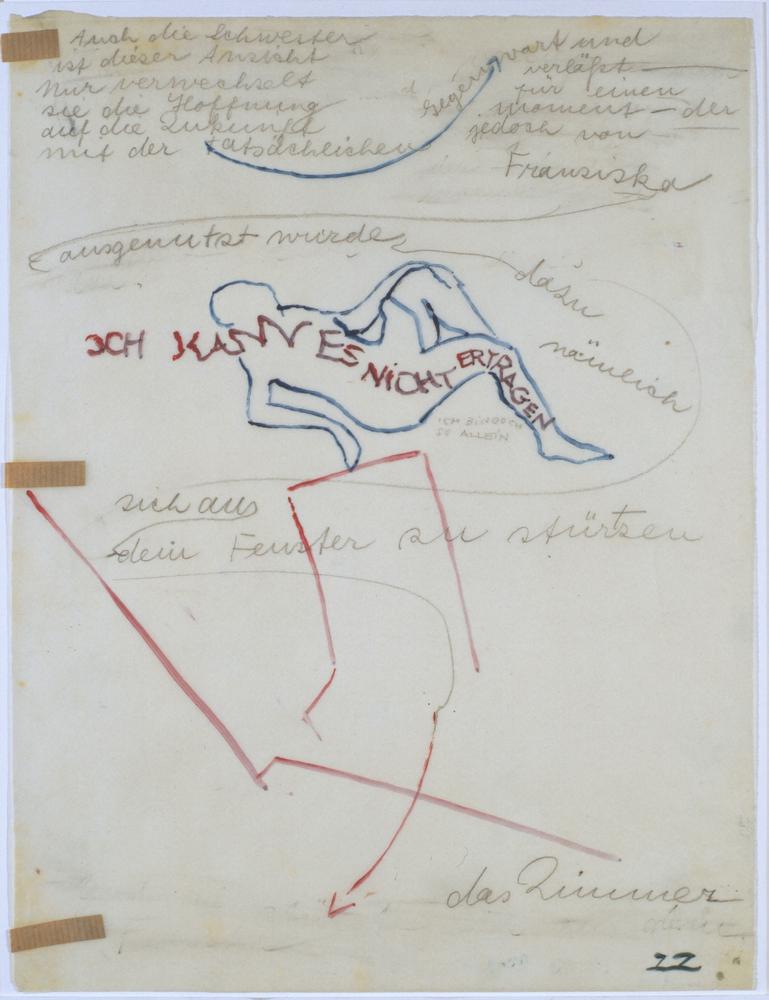 Auch die Schwester
ist dieser Ansicht
Nur verwechselt
sie die Hoffnung
auf die Zukunft
mit der tatsächlichen
Gegenwart und
verläßt
für einen
moment – der
jedoch von
Franziska
ausgenutzt wurde
dazu
nämlich
ICH KANN ES NICHT ERTRAGEN
ICH BIN DOCH
SO ALLEIN
sich aus
dem Fenster zu stürzen
das Zimmer
22